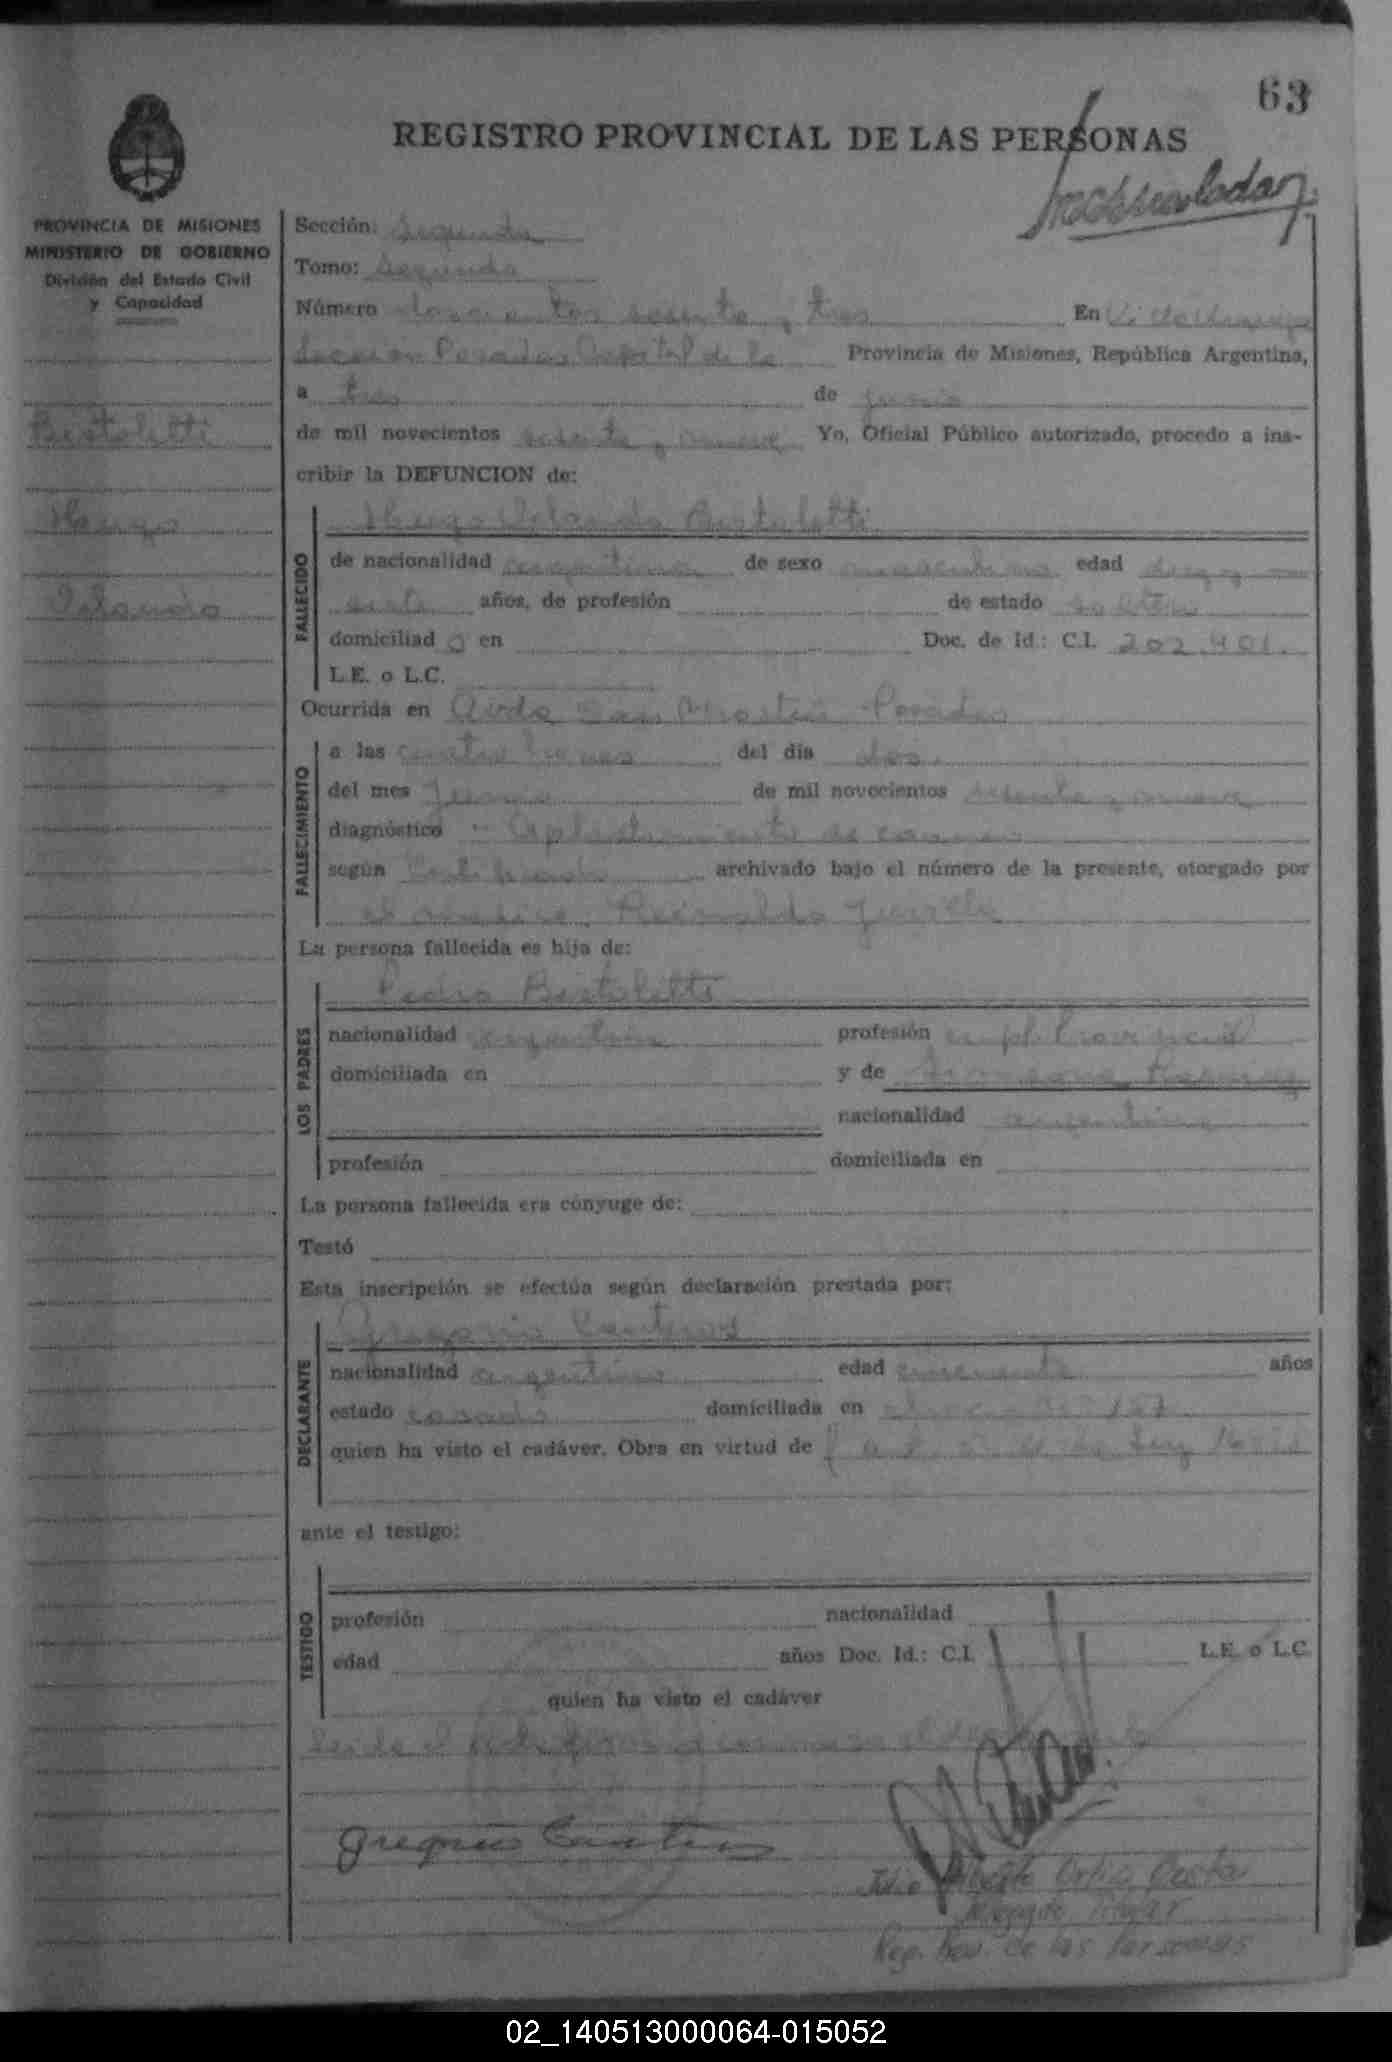 63
REGISTRO PROVINCIAL DE LAS PERSONAS
PROVINCIA DE MISIONES
MINISTERIO DE GOBIERNO
División del Estado Civil
y Capacidad
Bertoletti
Hugo
Orlando
Sección: Segunda
Tomo: Segundo
Número doscientos sesenta y tres En
Sección Posadas Capital de la Provincia de Misiones, República Argentina,
a tres de junio
de mil novecientos sesenta y nueve Yo, Oficial Público autorizado, procedo a ins-
cribir la DEFUNCION de:
FALLECIDO
Hugo Orlando Bertoletti
de nacionalidad argentina de sexo masculino edad diez y
siete años, de profesión de estado soltero
domiciliad o en Doc. de Id.: C.I. 202.401.
L.E. o L.C.
Ocurrida en Avda San Martin Posadas
FALLECIMIENTO
a las cuatro horas del día dos
del mes Junio de mil novecientos sesenta y nueve
diagnóstico Aplastamiento de craneo
según Certificado archivado bajo el número de la presente, otorgado por
el médico: Reinaldo
La persona fallecida es hija de:
LOS PADRES
Pedro Bertoletti
nacionalidad argentina profesión empl. Provincial
domiciliada en y de Ramirez
nacionalidad argentina
profesión domiciliada en
La persona fallecida era cónyuge de:
Testó
Esta inscripción se efectúa según declaración prestada por:
DECLARANTE
Gregorio Centeno
nacionalidad argentino edad cincuenta años
estado casado domiciliada en 157
quien ha visto el cadáver. Obra en virtud de Ley
ante el testigo:
TESTIGO
profesión nacionalidad
edad años Doc. Id.: C.I. L.E. o L.C.
quien ha visto el cadáver
Leida el acta firma
Julio Ortiz
Titular
Reg. Prov. de las Personas
02_140513000064-015052